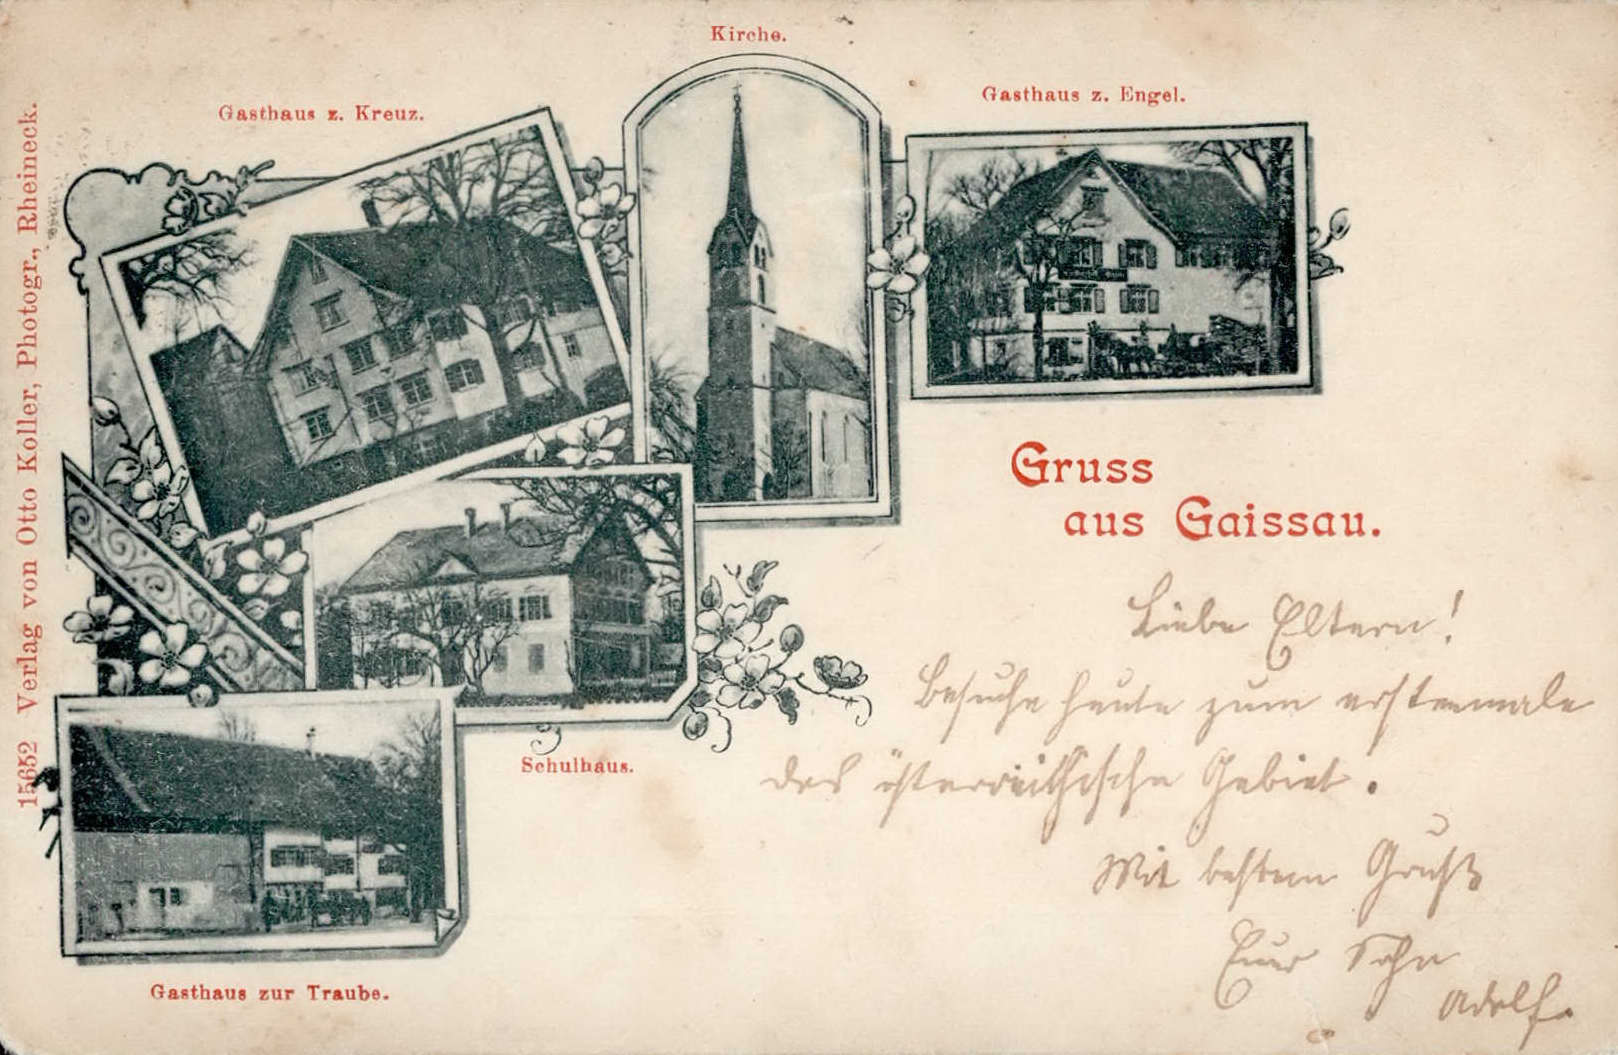 Kirche.
Gasthaus z. Kreuz.
Gasthaus z. Engel.
15652 Verlag von Otto Koller, Photogr., Rheineck.
Gruss
aus Gaissau.
Liebe Eltern!
Besuche heute zum erstenmale
das österreichische Gebiet.
Mit bestem Gruß
Euer Sohn
Adolf.
Schulhaus.
Gasthaus zur Traube.